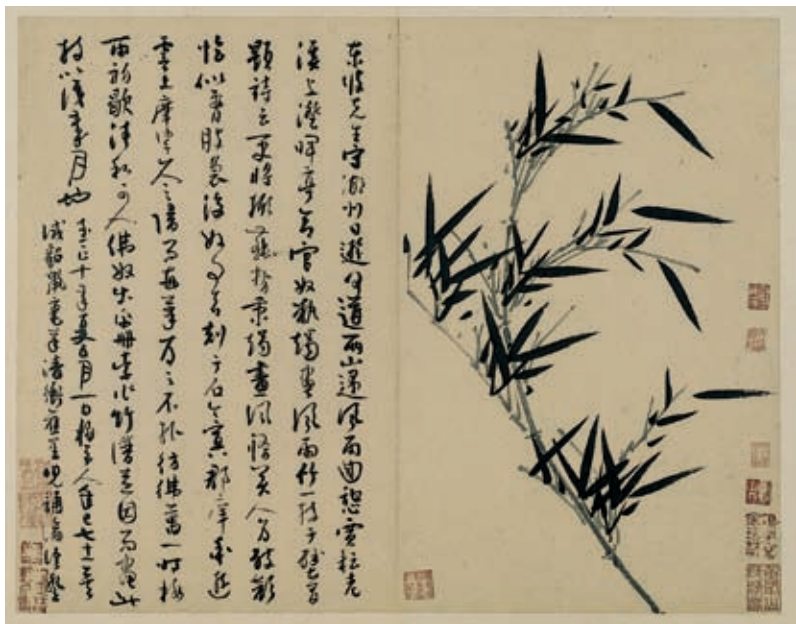 東坡先生守湖州日遊何道兩山遇風雨回憩賈耘老
溪上澄暉亭命官奴執燭畫風雨竹一枝于壁間
題詩云更將掀舞勢秉燭畫風篠美人為破顏
恰似腰肢裊後好事者刻于石今寘郡庠予遊
霅上摩挲久之歸而每筆萬萬不能彷彿萬一時梅
雨初歇清和可人佛奴出此冊索作竹譜遂因而畫此
枝以識歲月也
至正十年夏五月一日梅道人年已七十一矣
試貍毫筆潘衡舊墨